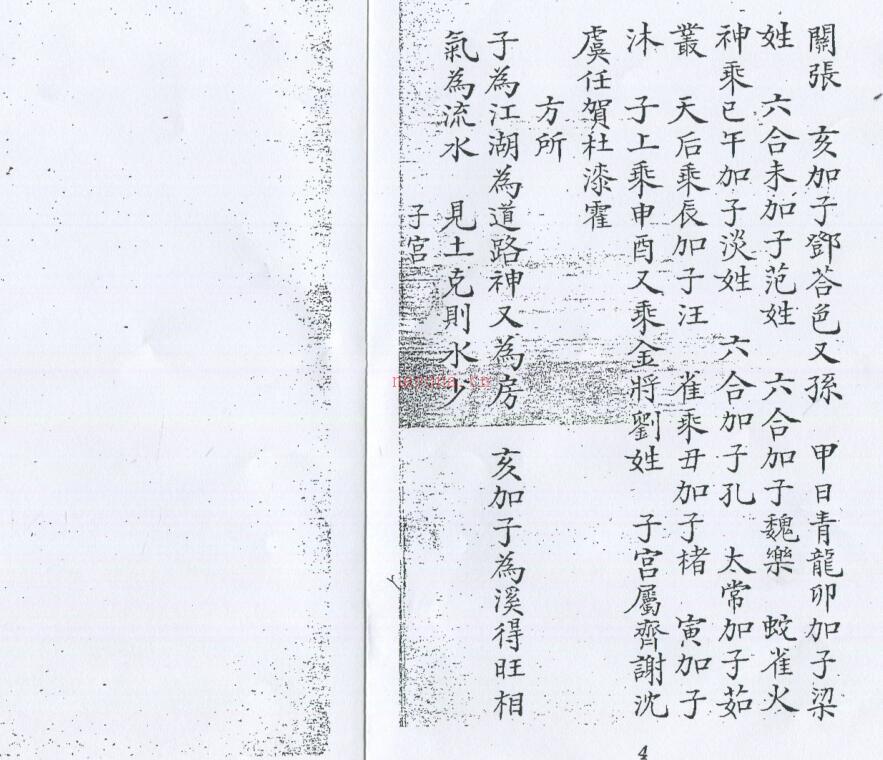 關張　亥加子鄧荅色又孫　甲日青龍卯加子梁
姓　六合未加子范姓　六合加子魏樂　蛇雀火
神乘巳午加子淡姓　六合加子孔　太常加子茹
叢　天后乘辰加子汪　雀乘丑加子楮　寅加子
沐　子上乘申酉又乘金將劉姓　子宮屬齊謝沈
虞任賀杜漆霍
方所
子為江湖為道路神又為房　亥加子為溪得旺相
氣為流水　見土克則水少
子宮
4